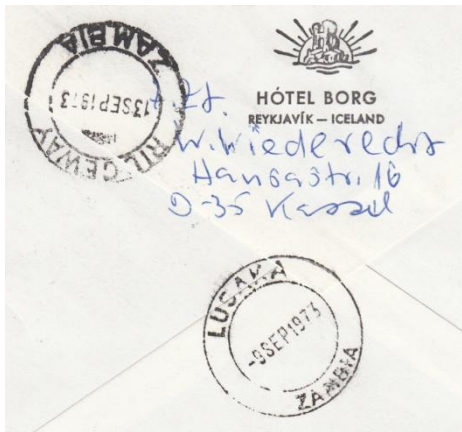 ZAMBIA
13 SEP 1973
RIDGEWAY
HÓTEL BORG
REYKJAVÍK – ICELAND
z. Zt.
W. Wiederecht
Hansastr. 16
D-35 Kassel
LUSAKA
-9 SEP 1973
ZAMBIA